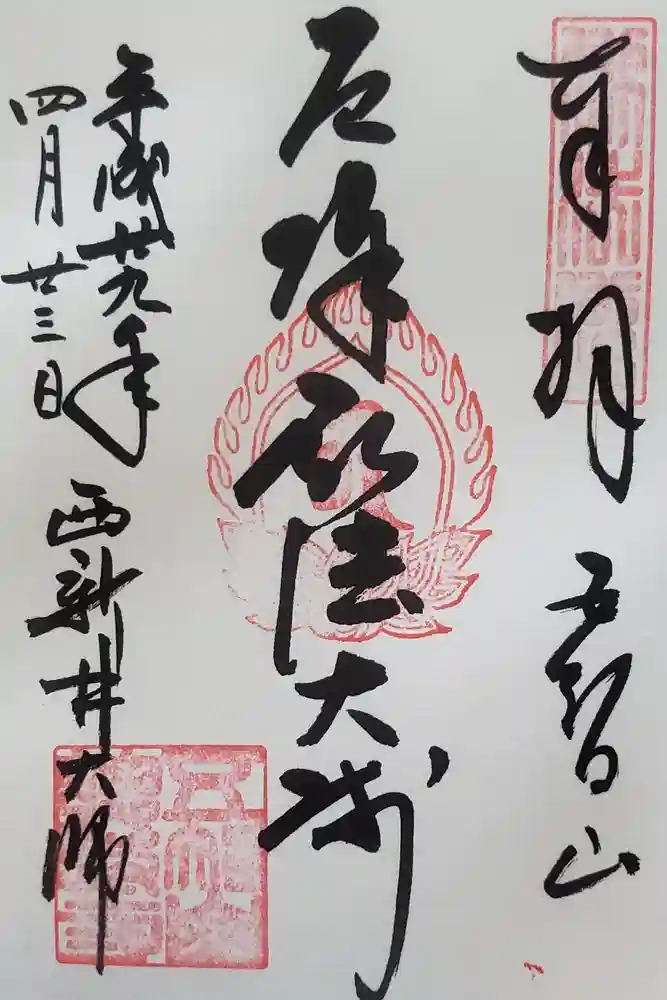 奉拝 五智山
厄除弘法大師
平成廿九年
四月廿三日
西新井大師